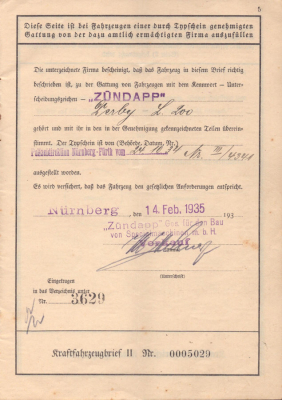 5
Diese Seite ist bei Fahrzeugen einer durch Typschein genehmigten
Gattung von der dazu amtlich ermächtigten Firma auszufüllen
Die unterzeichnete Firma bescheinigt, daß das Fahrzeug in diesem Brief richtig
beschrieben ist, zu der Gattung von Fahrzeugen mit dem Kennwort – Unter-
scheidungszeichen – „ZÜNDAPP"
Derby - L 200
gehört und mit ihr in den in der Genehmigung gekennzeichneten Teilen überein-
stimmt. Der Typschein ist von (Behörde, Datum, Nr.)
Polizeidirektion Nürnberg-Fürth vom
ausgestellt worden.
Es wird versichert, daß das Fahrzeug den gesetzlichen Anforderungen entspricht.
Nürnberg, den 14. Feb. 1935 193
„Zündapp" Ges. für den Bau
von m. b. H.
Verkauf
(Unterschrift)
Eingetragen
in das Verzeichnis unter
Nr. 3629
Kraftfahrzeugbrief II Nr. 0005029